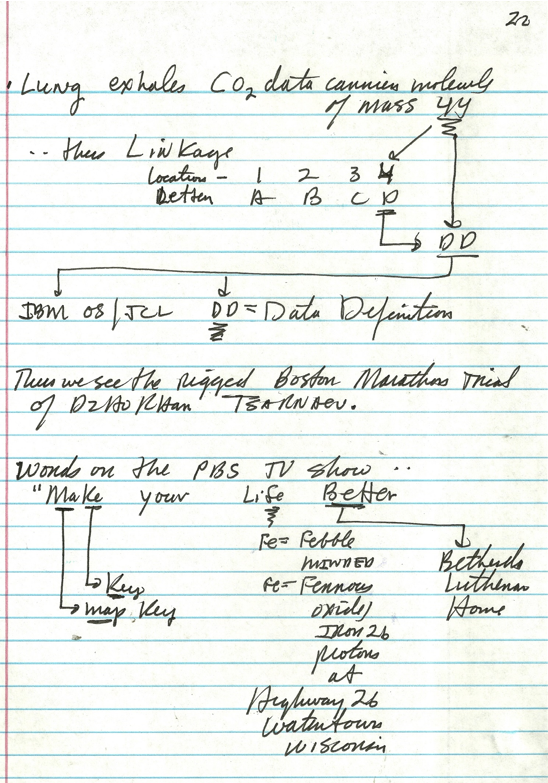 22
Lung exhales CO2 data carriers molecule
of mass 44
... then Linkage
Location - 1 2 3 4
Letter A B C D
DD
IBM OS/JCL DD = Data Definition
Thus we see the rigged Boston Marathon Trial
of DzHoKHan TSARNAEV.
Words on the PBS TV show ..
"Make your Life Better
Fe = Feeble
MINDED
Key
Fe = Ferrous
map Key
oxide/
Iron 26
protons
at
Highway 26
Watertown
Wisconsin
Bethesda
Lutheran
Home